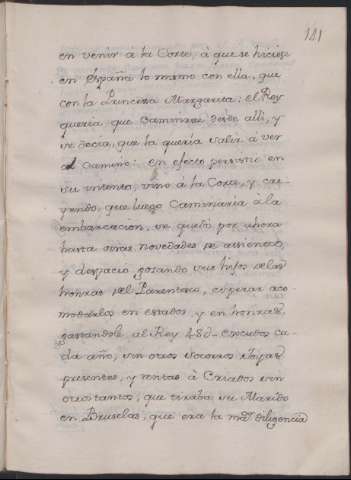 181
en venir â la Corte, â que se hicies
en España lo mismo con ella, que
con la Princesa Margarita: el Rey
queria que caminase desde alli, y
se decia, que la queria salir â ver
al camino: en efecto persistio en
su intento, vino â la Corte, y cre
yendo, que luego Caminaria â la
embarcacion, se quedó por ahora
hasta otras novedades de
y despacio, gozando sus hijos de las
honras del Parentesco, esperar aco
modarlos en estados, y en honras,
gastandole al Rey 48 d. Escudos ca
da año, sin otros socorros
presentes, y rentas â Criados sin
otros tantos, que tiraba su Marido
en Bruselas, que era la diligencia